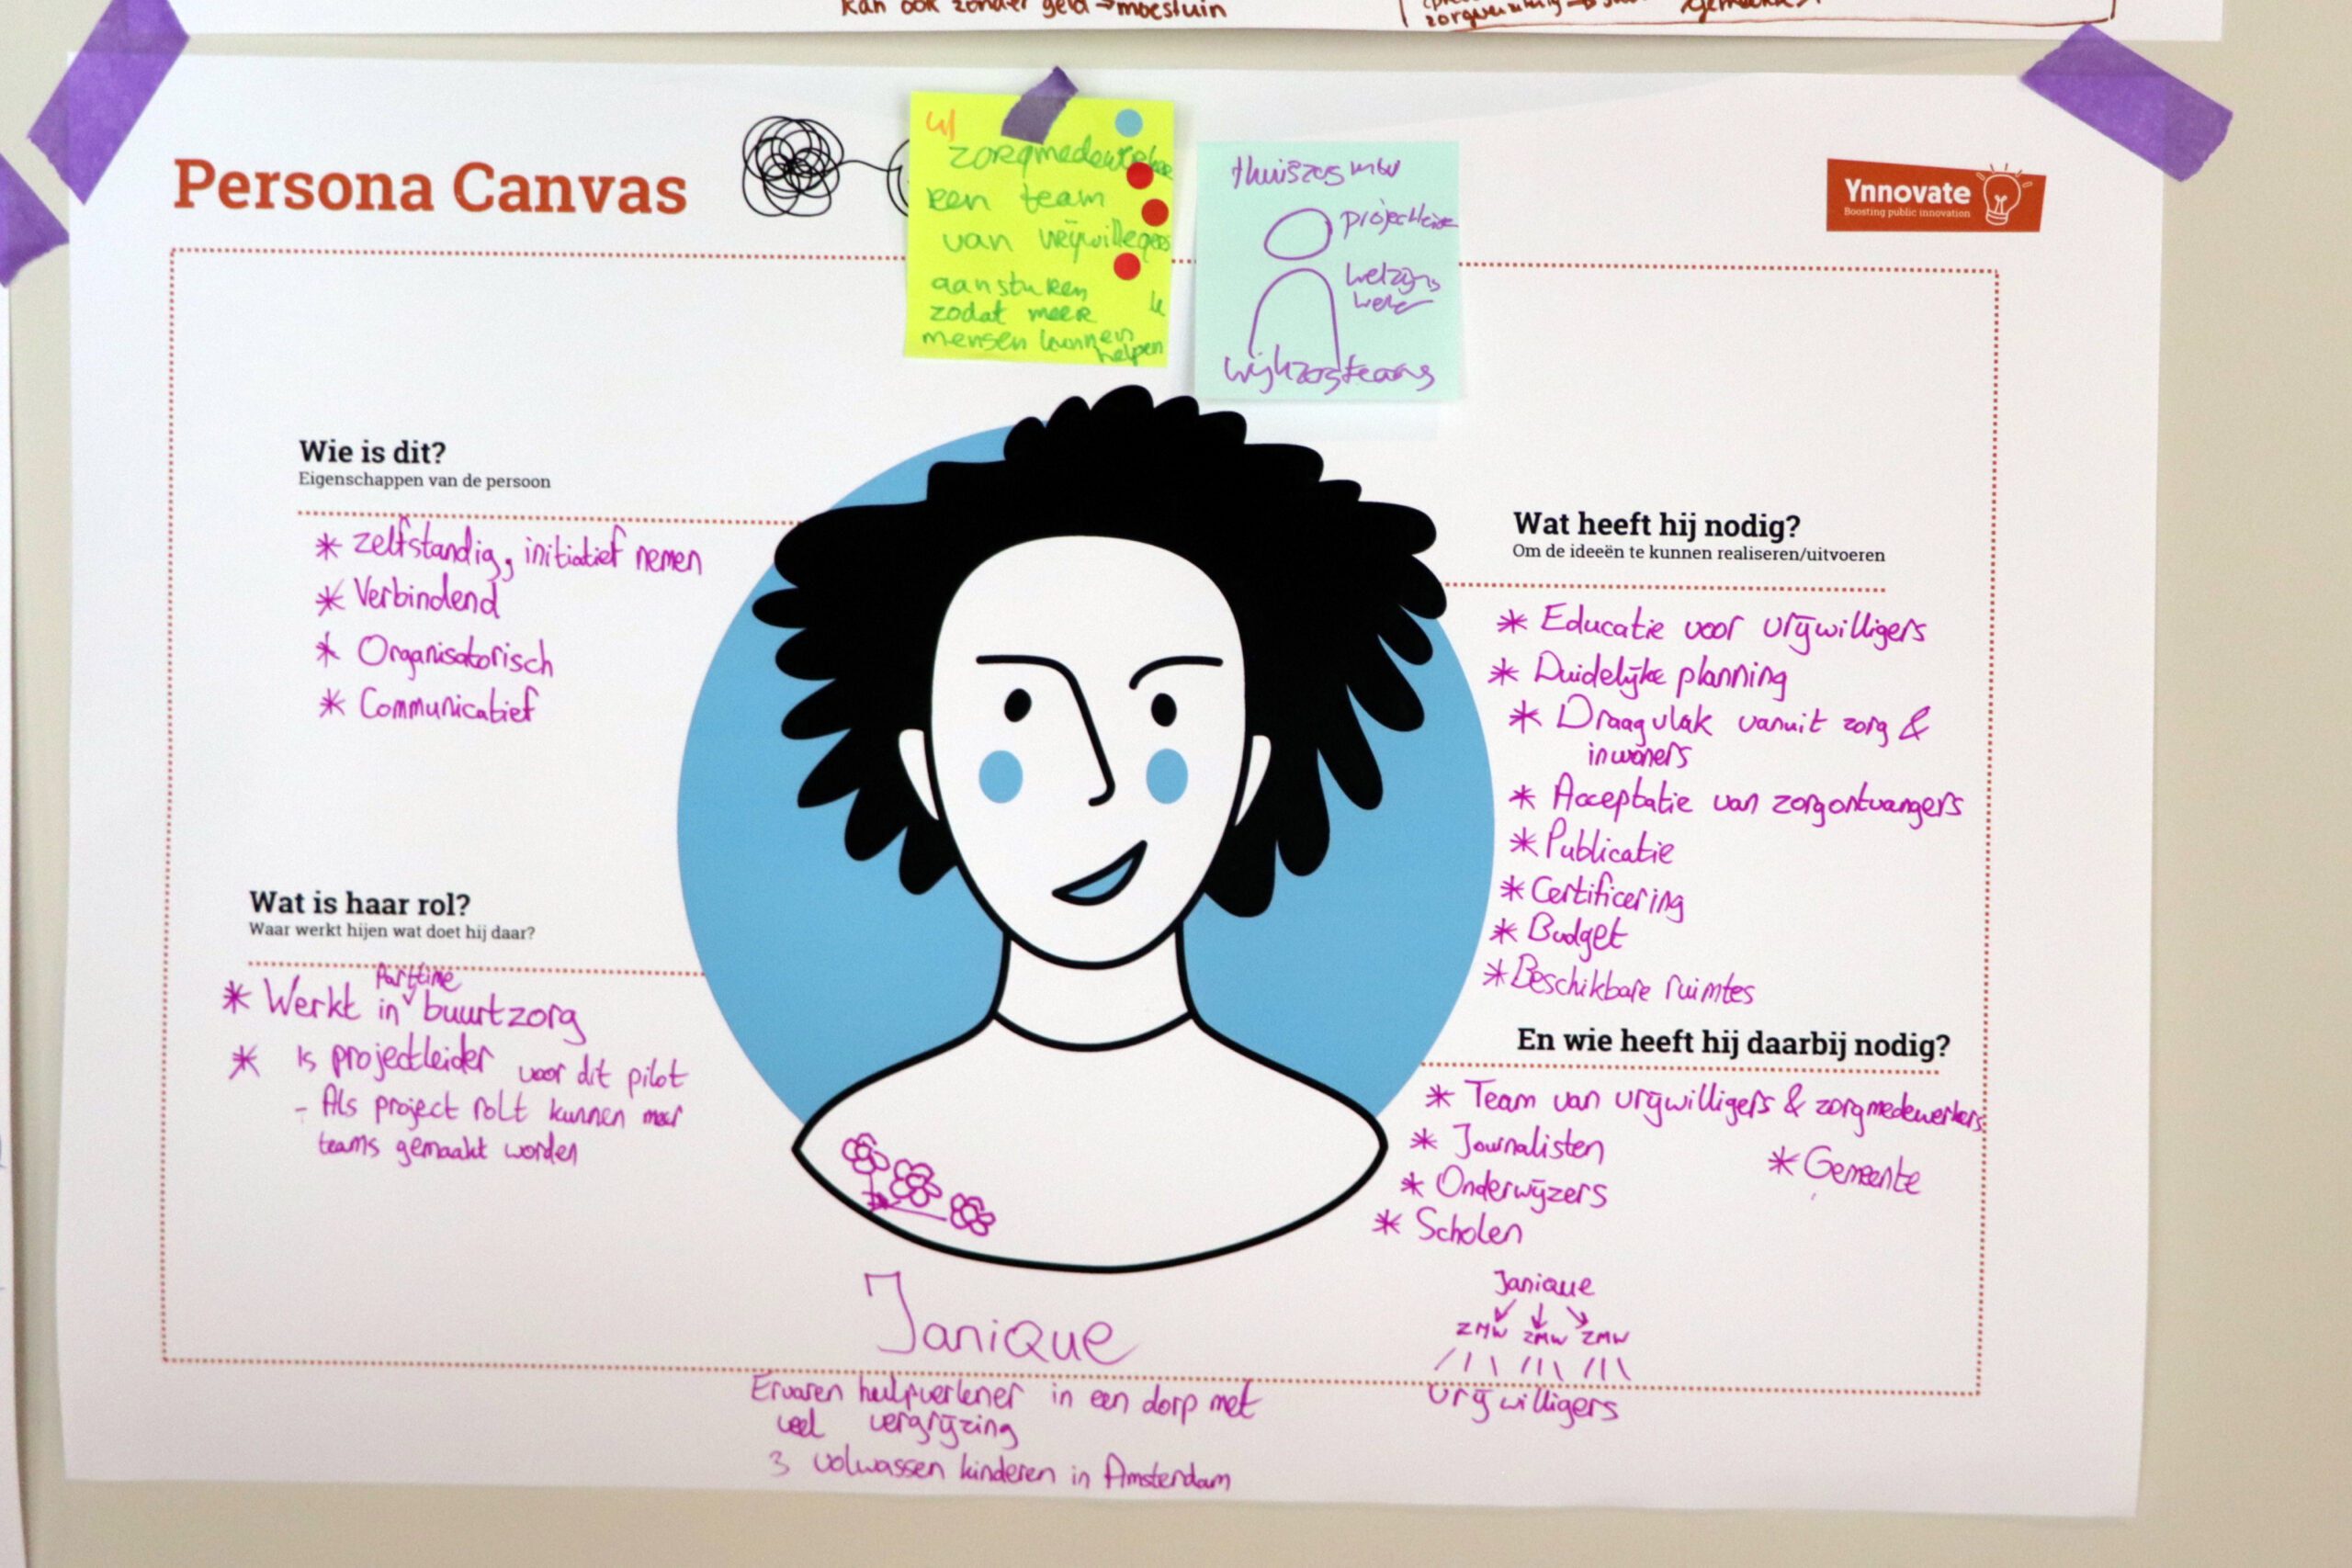 kan ook zonder geld → moestuin
Persona Canvas
zorgmedewerker
een team
van vrijwillegers
aansturen
zodat meer
mensen kunnen
helpen
thuiszorg mw
projectleider
welzijns
werker
wijkzorgteams
Ynnovate
Boosting public innovation
Wie is dit?
Eigenschappen van de persoon
* zelfstandig, initiatief nemen
* Verbindend
* Organisatorisch
* Communicatief
Wat is haar rol?
Waar werkt hijen wat doet hij daar?
Parttime
* Werkt in buurtzorg
* Is projectleider voor dit pilot
- Als project rolt kunnen meer
teams gemaakt worden
Wat heeft hij nodig?
Om de ideeën te kunnen realiseren/uitvoeren
* Educatie voor vrijwilligers
* Duidelijke planning
* Draagvlak vanuit zorg &
inwoners
* Acceptatie van zorgontvangers
* Publicatie
* Certificering
* Budget
* Beschikbare ruimtes
En wie heeft hij daarbij nodig?
* Team van vrijwilligers & zorgmedewerkers
* Journalisten
* Gemeente
* Onderwijzers
* Scholen
Janique
ZMW ZMW ZMW
vrijwilligers
Janique
Ervaren hulpverlener in een dorp met
veel vergrijzing
3 volwassen kinderen in Amsterdam